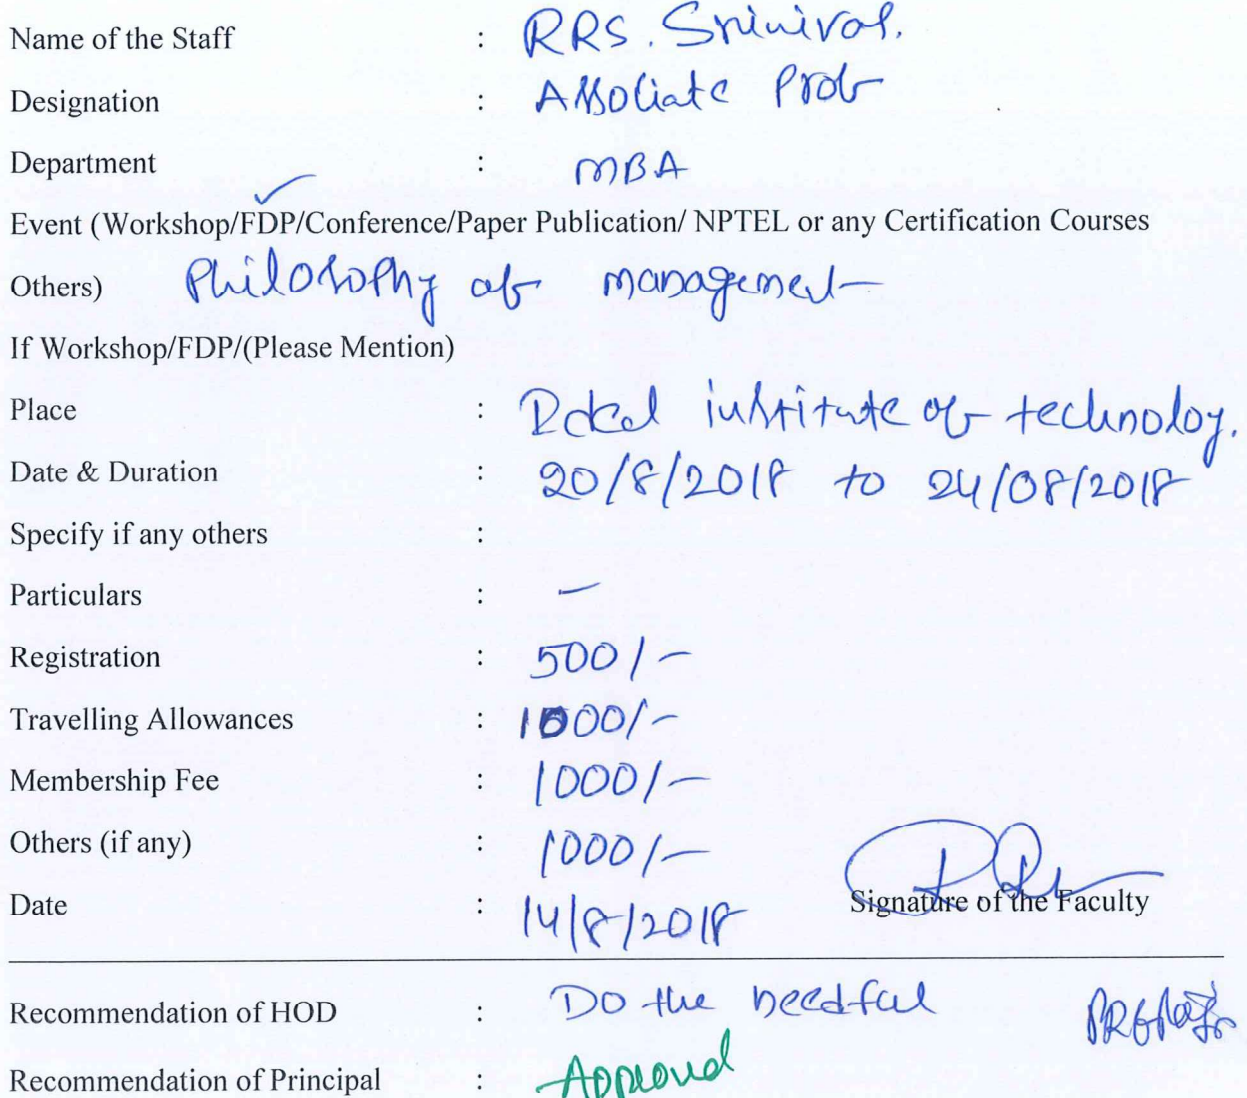 Name of the Staff : RRS. Srinivas.
Designation : Associate Prof
Department : MBA
Event (Workshop/FDP/Conference/Paper Publication/ NPTEL or any Certification Courses
Others) Philosophy of management
If Workshop/FDP/(Please Mention)
Place : institute of technology.
Date & Duration : 20/8/2018 to 24/08/2018
Specify if any others :
Particulars : —
Registration : 500/-
Travelling Allowances : 1000/-
Membership Fee : 1000/-
Others (if any) : 1000/-
Date : 14/8/2018 Signature of the Faculty
Recommendation of HOD : Do the needful
Recommendation of Principal : Approved